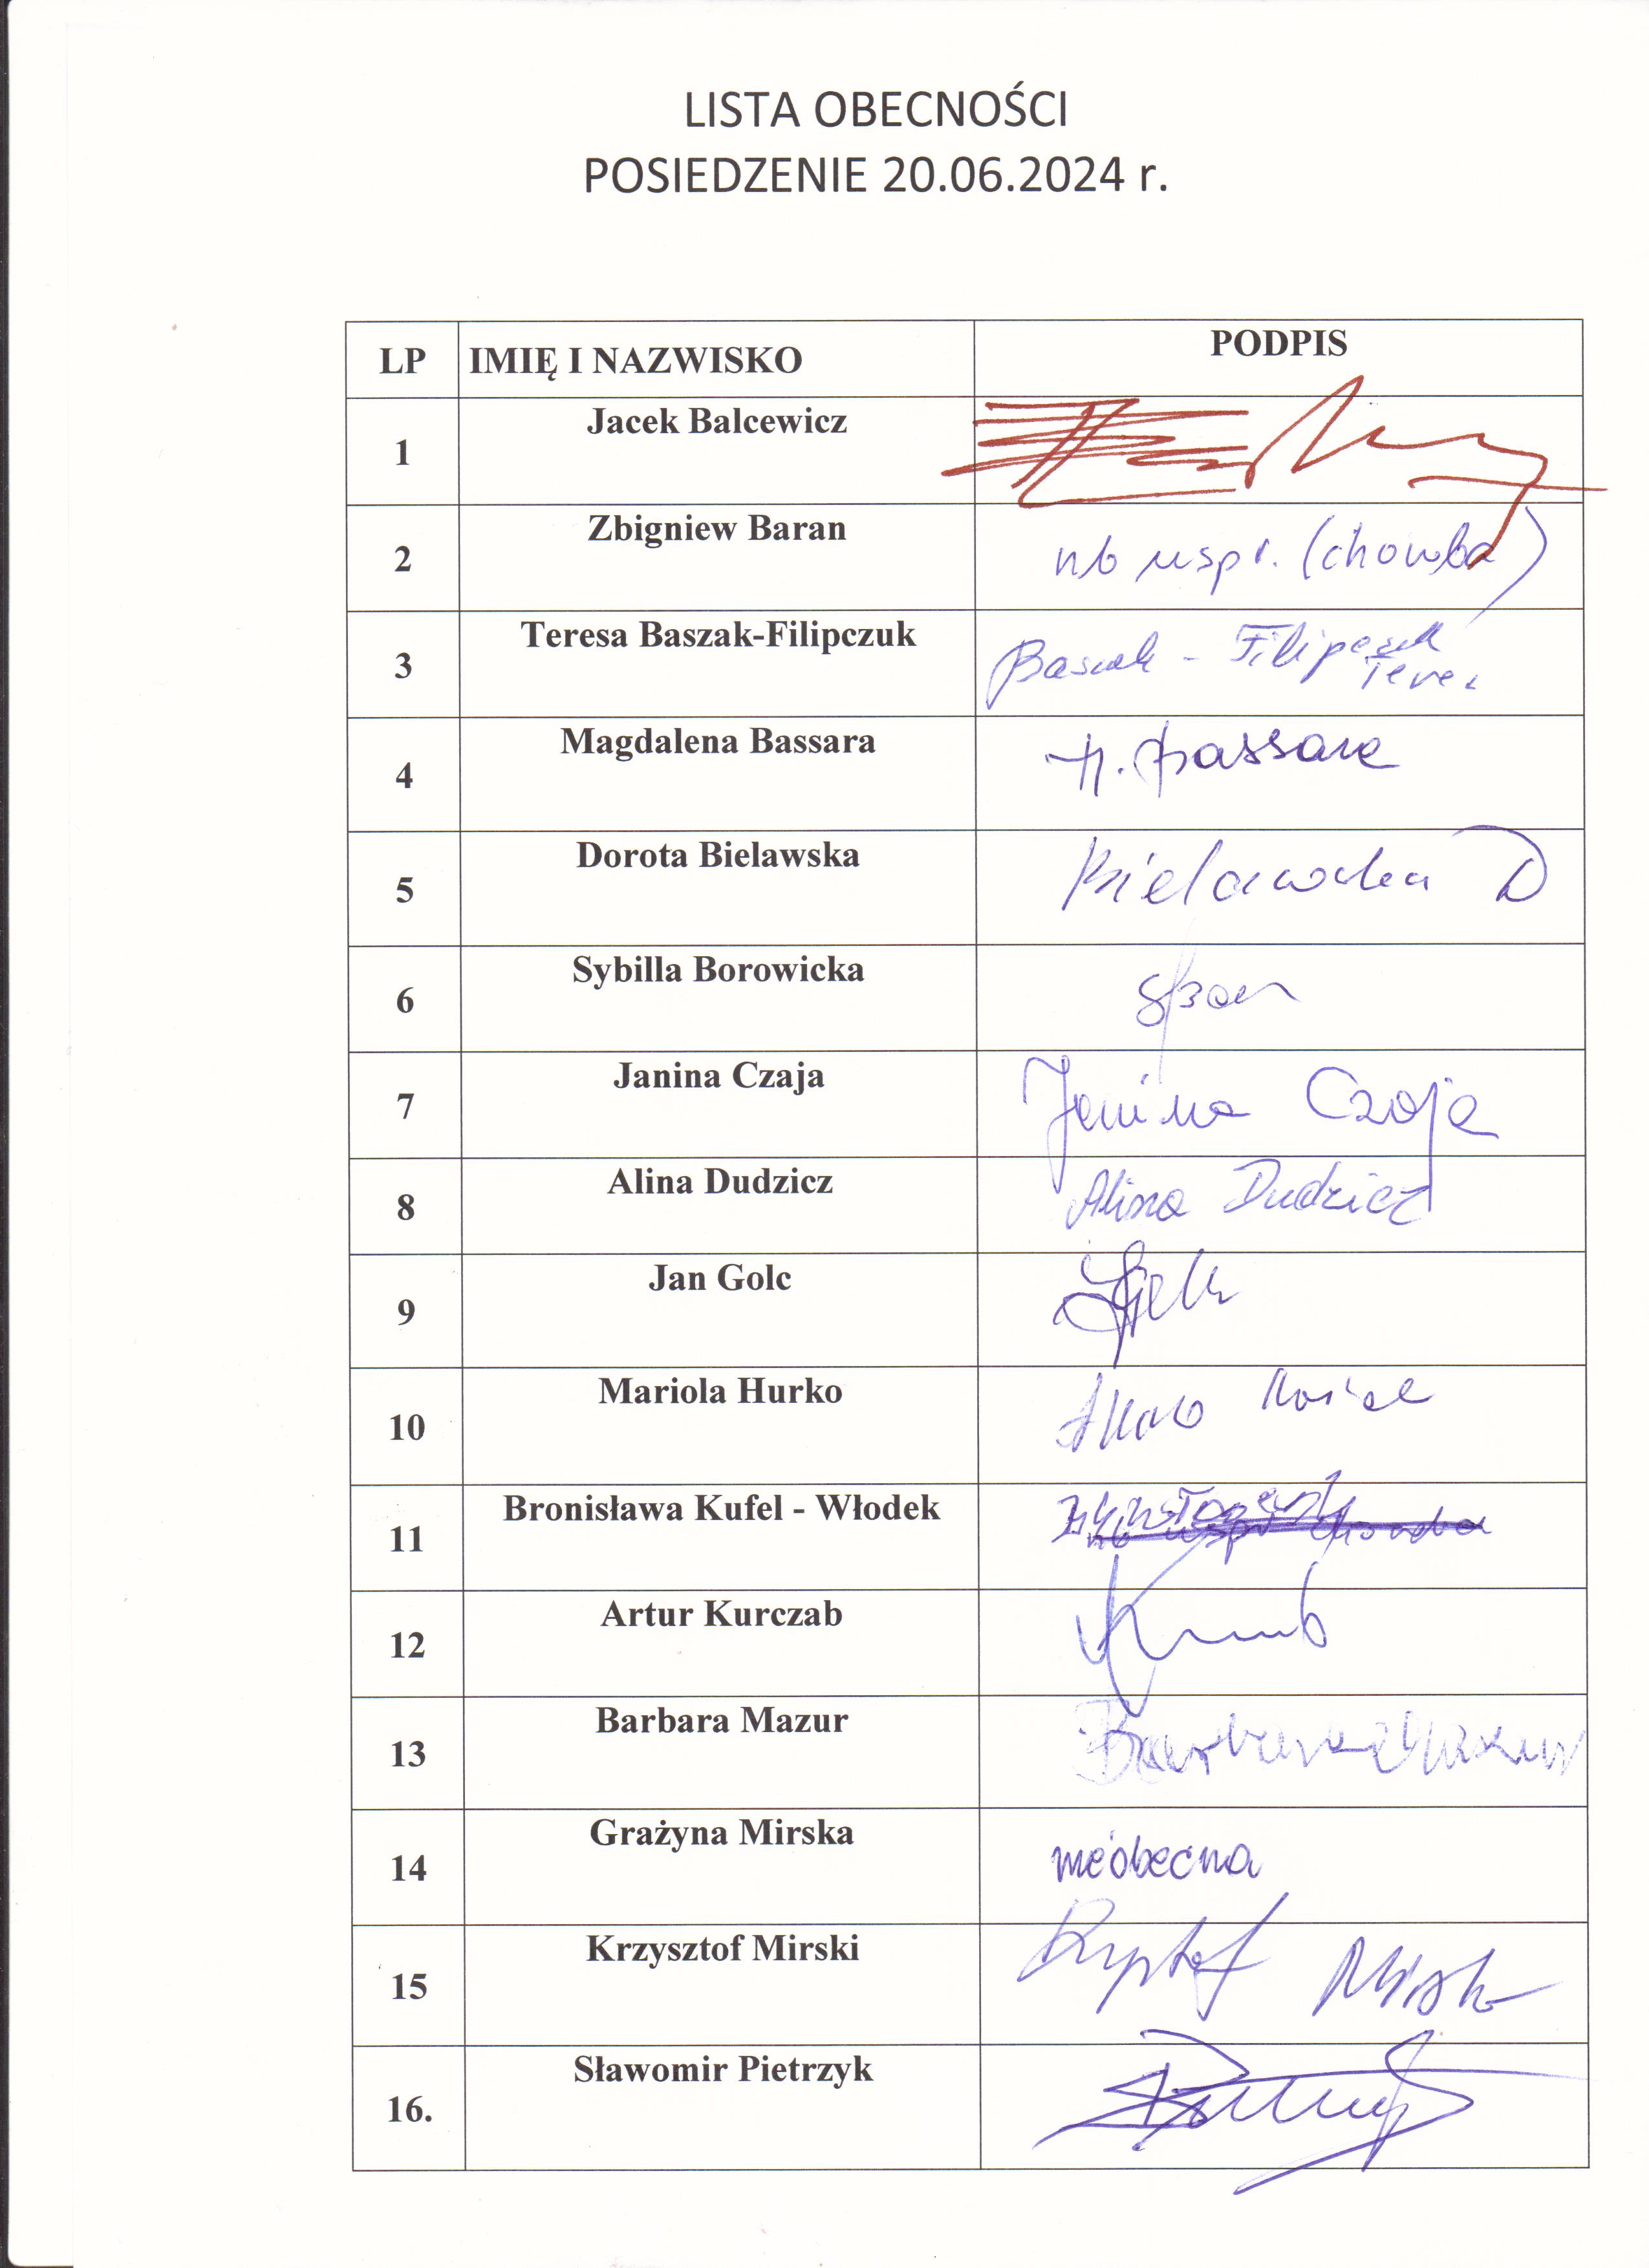 LISTA OBECNOŚCI
POSIEDZENIE 20.06.2024 r.
LP IMIĘ I NAZWISKO PODPIS
1 Jacek Balcewicz
2 Zbigniew Baran nb uspr. (choroba)
3 Teresa Baszak-Filipczuk Baszak - Filipczuk
Teresa
4 Magdalena Bassara M. Bassara
5 Dorota Bielawska Bielawska D
6 Sybilla Borowicka
7 Janina Czaja Janina Czaja
8 Alina Dudzicz Alina Dudzicz
9 Jan Golc
10 Mariola Hurko
11 Bronisława Kufel - Włodek
12 Artur Kurczab
13 Barbara Mazur Barbara Mazur
14 Grażyna Mirska nieobecna
15 Krzysztof Mirski Krzysztof Mirski
16. Sławomir Pietrzyk